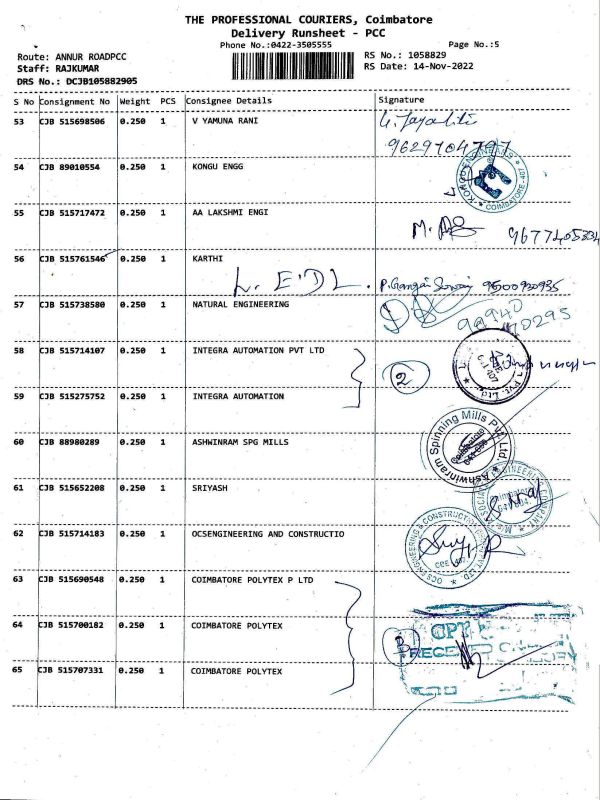 THE PROFESSIONAL COURIERS, Coimbatore
Delivery Runsheet - PCC
Phone No.:0422-3505555 Page No.:5
Route: ANNUR ROADPCC RS No.: 1058829
Staff: RAJKUMAR RS Date: 14-Nov-2022
DRS No.: DCJB105882905
S No Consignment No Weight PCS Consignee Details Signature
53 CJB 515698506 0.250 1 V YAMUNA RANI
9629704797
54 CJB 89010554 0.250 1 KONGU ENGG
COIMBATORE - 407
55 CJB 515717472 0.250 1 AA LAKSHMI ENGI
M.
56 CJB 515761546 0.250 1 KARTHI
9500930935
57 CJB 515738580 0.250 1 NATURAL ENGINEERING
99940
70295
58 CJB 515714107 0.250 1 INTEGRA AUTOMATION PVT LTD
2
59 CJB 515275752 0.250 1 INTEGRA AUTOMATION
60 CJB 88980289 0.250 1 ASHWINRAM SPG MILLS
Ashwinram Spinning Mills Pvt. Ltd.
61 CJB 515652208 0.250 1 SRIYASH
62 CJB 515714183 0.250 1 OCSENGINEERING AND CONSTRUCTIO
OCS ENGINEERING & CONSTRUCTION
63 CJB 515690548 0.250 1 COIMBATORE POLYTEX P LTD
64 CJB 515700182 0.250 1 COIMBATORE POLYTEX
CPT
65 CJB 515707331 0.250 1 COIMBATORE POLYTEX